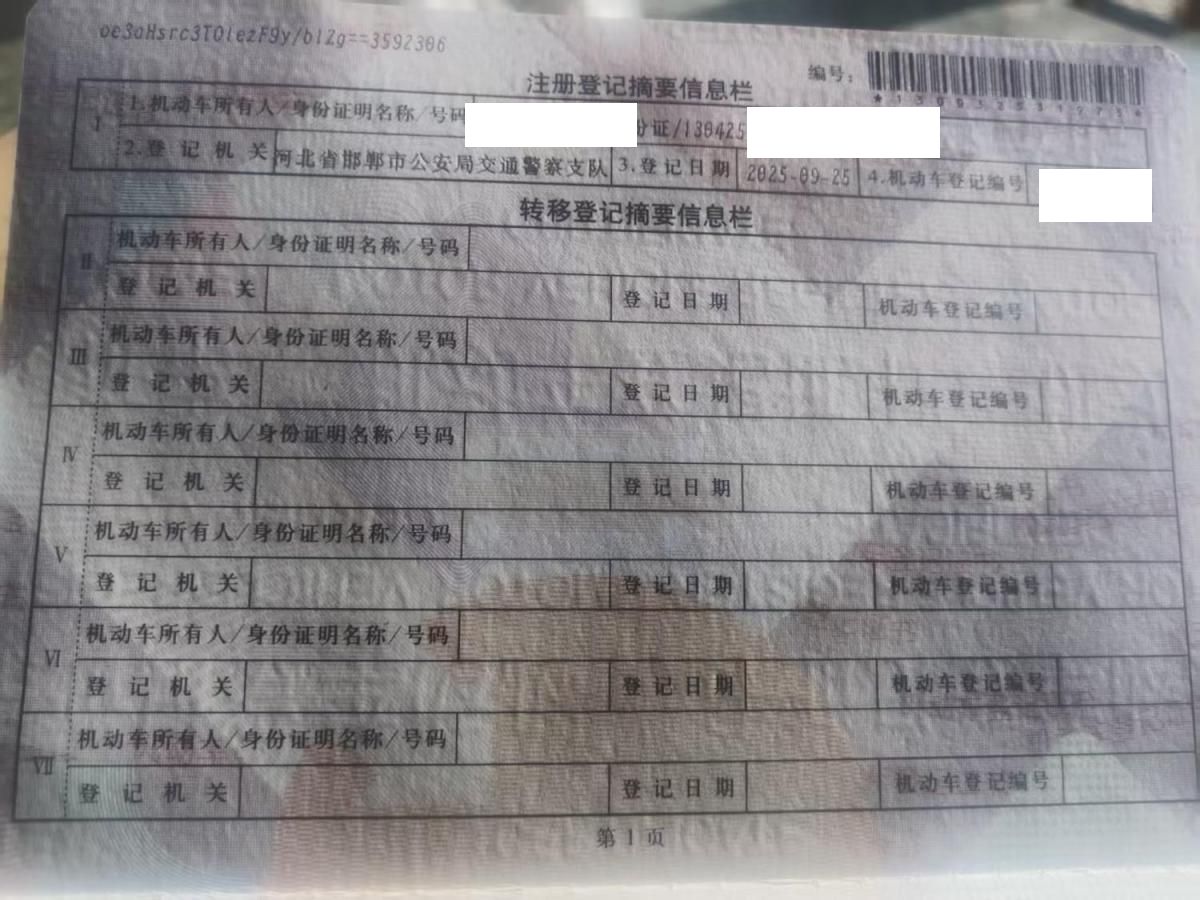 oe3aHsrc3TOlezF9y/blZg==3592306
编号：
*130032531975*
注册登记摘要信息栏
I 1.机动车所有人/身份证明名称/号码 份证/130425
2.登记机关 河北省邯郸市公安局交通警察支队 3.登记日期 2025-09-25 4.机动车登记编号
转移登记摘要信息栏
II 机动车所有人/身份证明名称/号码
登记机关 登记日期 机动车登记编号
III 机动车所有人/身份证明名称/号码
登记机关 登记日期 机动车登记编号
IV 机动车所有人/身份证明名称/号码
登记机关 登记日期 机动车登记编号
V 机动车所有人/身份证明名称/号码
登记机关 登记日期 机动车登记编号
VI 机动车所有人/身份证明名称/号码
登记机关 登记日期 机动车登记编号
VII 机动车所有人/身份证明名称/号码
登记机关 登记日期 机动车登记编号
第 1 页